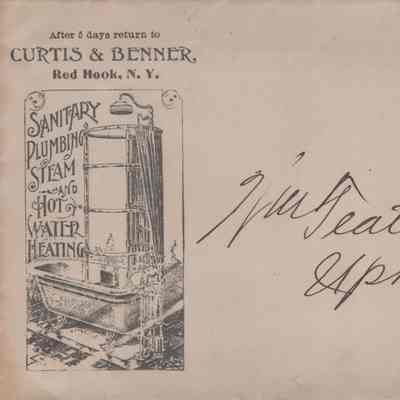 After 5 days return to
CURTIS & BENNER,
Red Hook, N. Y.
SANITARY
PLUMBING
STEAM
AND
HOT
WATER
HEATING
Wm